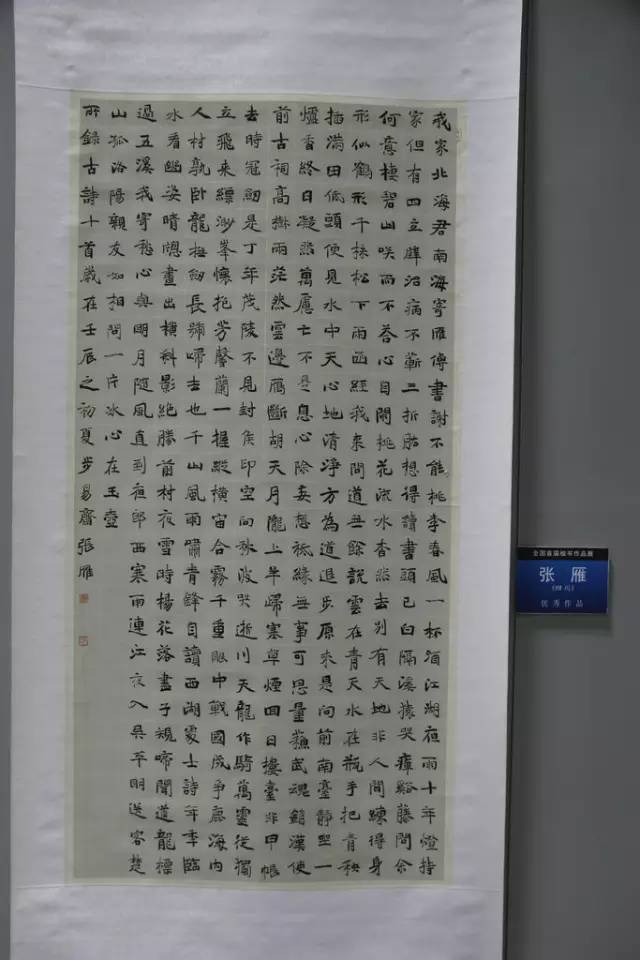 我家北海君南海寄雁傳書謝不能桃李春風一杯酒江湖夜雨十年燈持
家但有四立壁治病不蘄三折肱想得讀書頭已白隔溪猿哭瘴谿藤問余
何意棲碧山咲而不荅心自閑桃花流水杳然去別有天地非人間練得身
形似鶴形千株松下兩函經我来問道無餘說雲在青天水在瓶手把青秧
插滿田低頭便見水中天心地清淨方為道退步原来是向前南臺靜坐一
爐香終日凝然萬慮亡不是息心除妄想祗緣無事可思量蘇武魂銷漢使
前古祠高樹兩茫然雲邊雁斷胡天月隴上羊歸塞草煙回日樓臺非甲帳
去時冠劒是丁年茂陵不見封侯印空向秋波哭逝川天龍作騎萬靈從獨
立飛来縹渺峯懷抱芳馨蘭一握縱橫宙合霧千重眼中戰國成争鹿海内
人材孰卧龍撫劒長號歸去也千山風雨嘯青鋒自讀西湖處士詩年年臨
水看幽姿晴窗畫出横斜影絶勝前村夜雪時楊花落盡子規啼聞道龍標
過五溪我寄愁心與明月隨風直到夜郎西寒雨連江夜入吳平明送客楚
山孤洛陽親友如相問一片冰心在玉壺
所錄古詩十首歲在壬辰之初夏步易齋張雁
全国首届楷书作品展
张 雁
(四川)
优秀作品